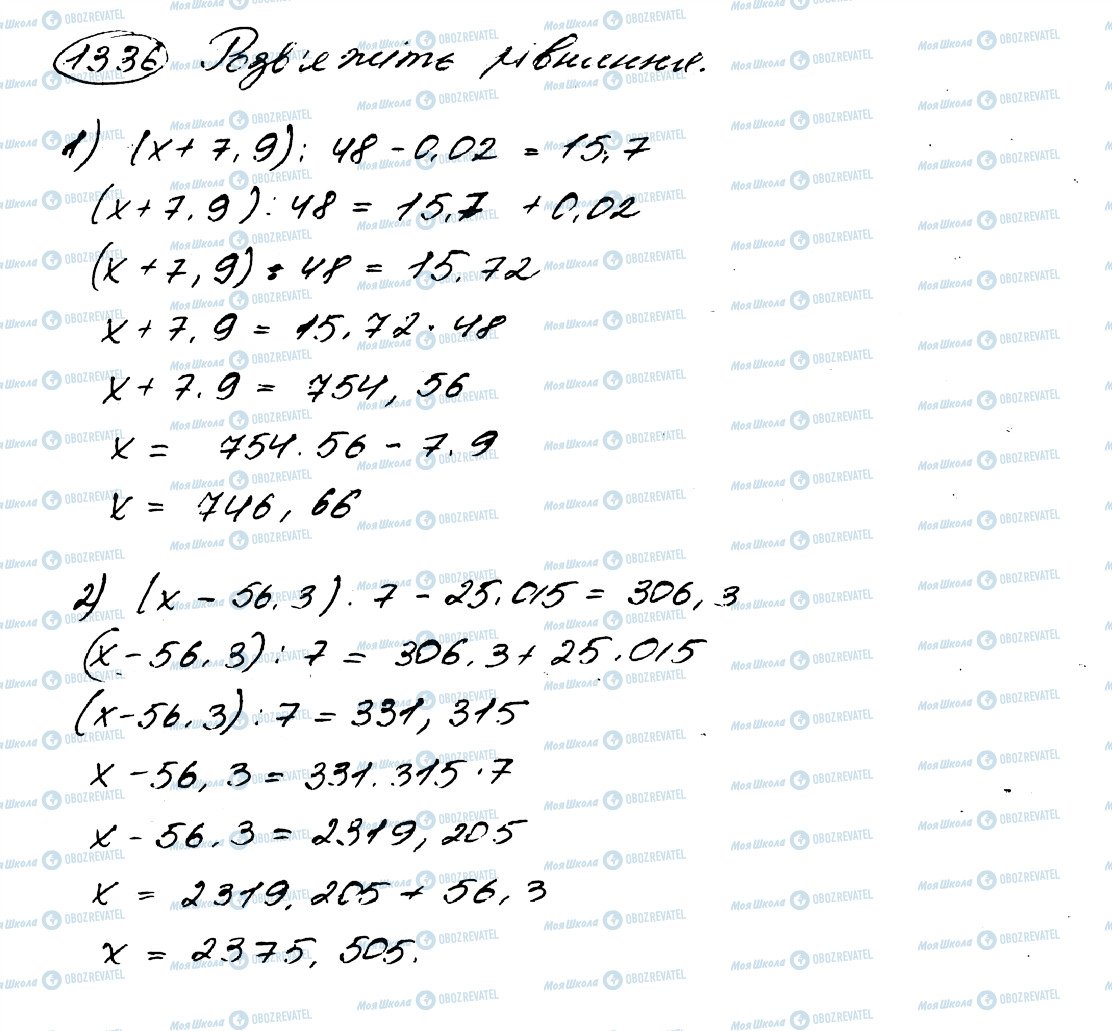 1336 Розв'яжіть рівняння.
1) (x + 7,9) : 48 - 0,02 = 15,7
(x + 7,9) : 48 = 15,7 + 0,02
(x + 7,9) : 48 = 15,72
x + 7,9 = 15,72 · 48
x + 7,9 = 754,56
x = 754,56 - 7,9
x = 746,66
2) (x - 56,3) : 7 - 25,015 = 306,3
(x - 56,3) : 7 = 306,3 + 25,015
(x - 56,3) : 7 = 331,315
x - 56,3 = 331,315 · 7
x - 56,3 = 2319,205
x = 2319,205 + 56,3
x = 2375,505.